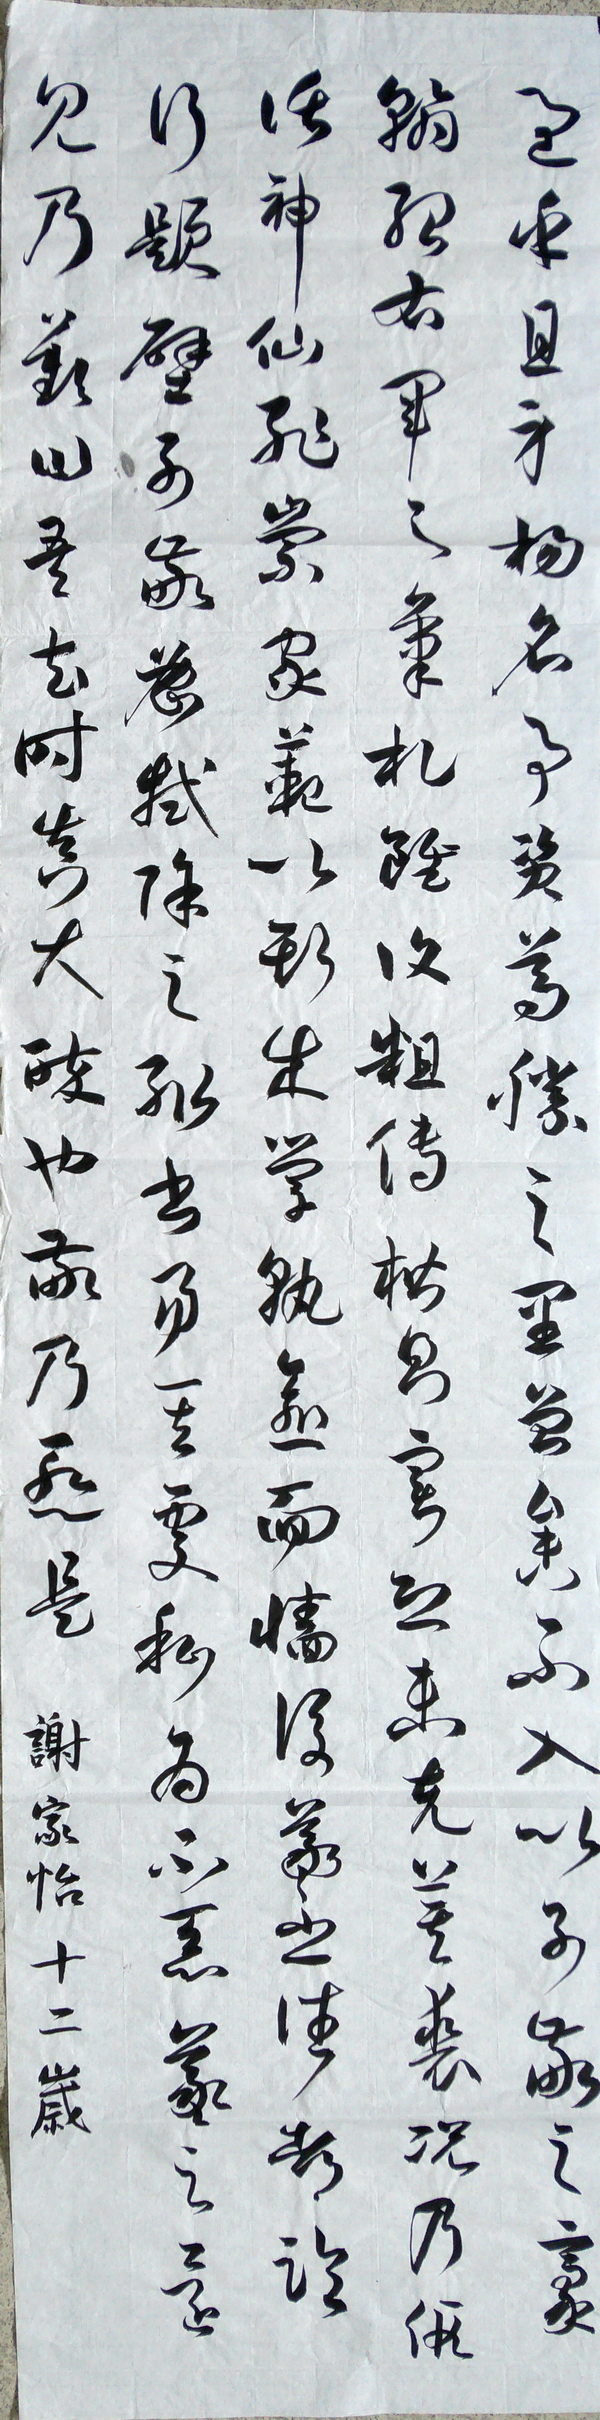 過乎且立身揚名事資尊顯勝母之里曾參不入以子敬之豪
翰紹右軍之筆札雖復粗傳楷則實恐未克箕裘況乃假
託神仙恥崇家範以斯成學孰愈面牆後羲之往都臨
行題壁子敬密拭除之輒書易其處私為不惡羲之還
見乃歎曰吾去時真大醉也敬乃內慚是
謝家怡十二歲